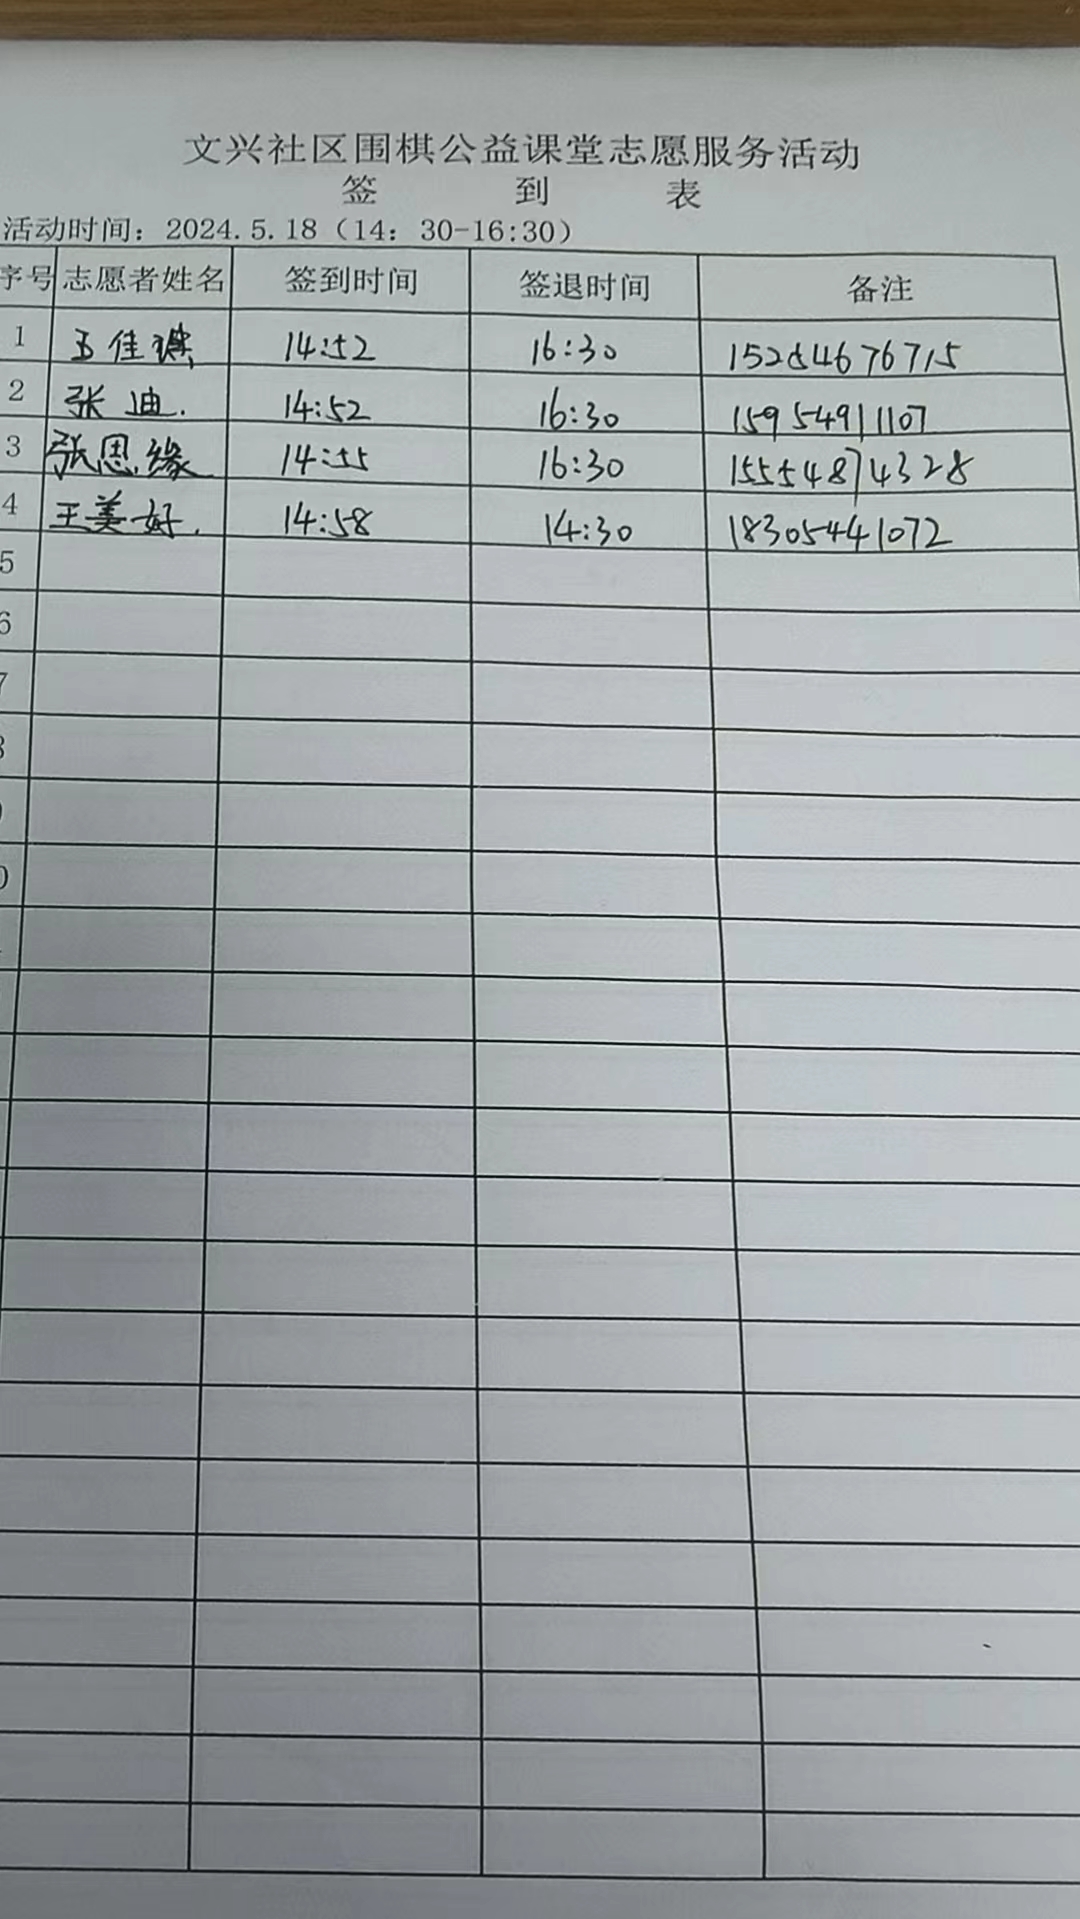 文兴社区围棋公益课堂志愿服务活动
签 到 表
活动时间：2024.5.18（14：30-16:30）
序号 志愿者姓名 签到时间 签退时间 备注
1 王佳琪 14:52 16:30 15254676715
2 张迪. 14:52 16:30 15954911107
3 张思缘 14:55 16:30 15554874328
4 王美好. 14:58 14:30 18305441072
5
6
7
8
9
0